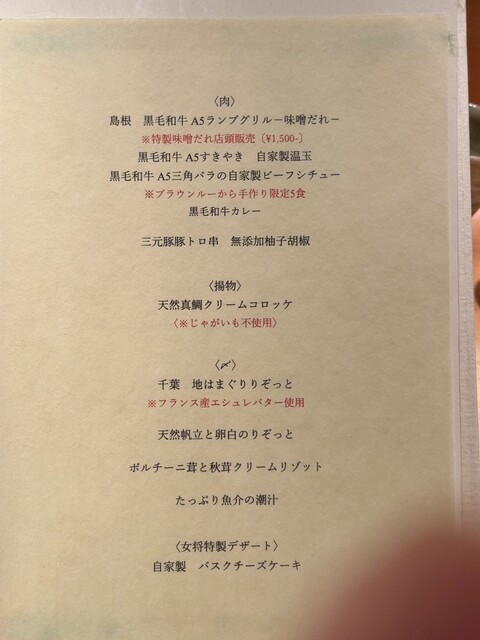 〈肉〉
島根　黒毛和牛A5ランプグリル－味噌だれ－
※特製味噌だれ店頭販売〔¥1,500-〕
黒毛和牛A5すきやき　自家製温玉
黒毛和牛A5三角バラの自家製ビーフシチュー
※ブラウンルーから手作り限定5食
黒毛和牛カレー
三元豚豚トロ串　無添加柚子胡椒
〈揚物〉
天然真鯛クリームコロッケ
〈※じゃがいも不使用〉
〈〆〉
千葉　地はまぐりりぞっと
※フランス産エシュレバター使用
天然帆立と卵白のりぞっと
ポルチーニ茸と秋茸クリームリゾット
たっぷり魚介の潮汁
〈女将特製デザート〉
自家製　バスクチーズケーキ